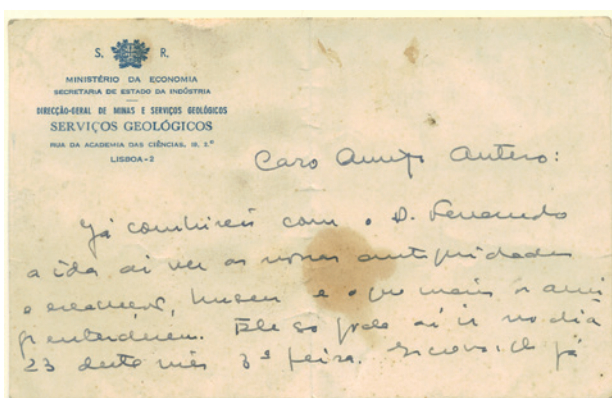 S. R.
MINISTÉRIO DA ECONOMIA
SECRETARIA DE ESTADO DA INDÚSTRIA
DIRECÇÃO-GERAL DE MINAS E SERVIÇOS GEOLÓGICOS
SERVIÇOS GEOLÓGICOS
RUA DA ACADEMIA DAS CIÊNCIAS, 19, 2.º
LISBOA-2
Caro Amigo Antero:
Já combinei com o D. Fernando
a ida aí ver as novas antiguidades
o Museu e o que mais o ami
go entender. Ele só pode aí ir no dia
23 deste mês 3ª feira. já